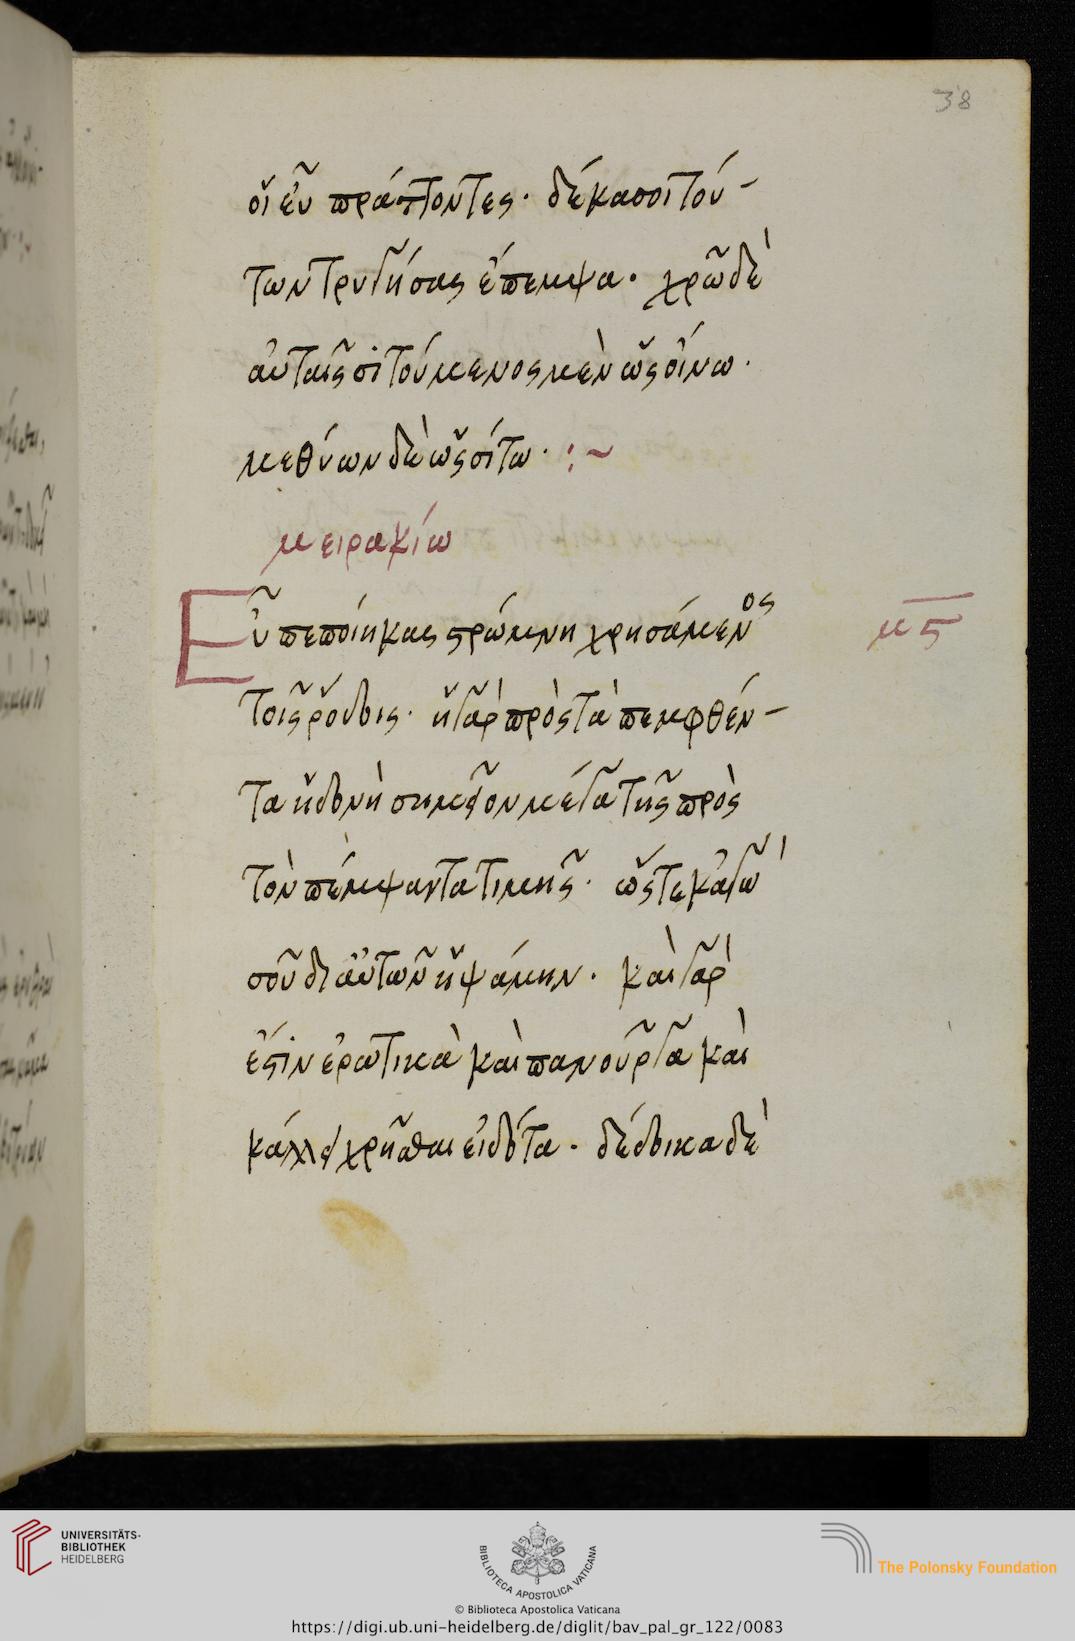 38
οἵ εὖ πράττοντες· δέκα σοι τού-
των τρυγήσας ἔπεμψα· χρῶ δὲ
αὐταῖς σιτούμενος μὲν ὡς οἴνω·
μεθύων δὲ ὡς σίτω· :~
μειρακίω
Εὖ πεποίηκας στρώμνη χρησάμενος
μϛ
τοῖς ῥόδοις· ἡ γὰρ πρὸς τὰ πεμφθέν-
τα ἡδονὴ σημεῖον μέγα τῆς πρὸς
τὸν πέμψαντα τιμῆς· ὥστε κἀγὼ
σοῦ δι αὐτῶν ἡψάμην· καὶ γὰρ
ἔστιν ἐρωτικὰ καὶ πανοῦργα καὶ
κάλλει χρῆσθαι εἰδότα· δέδοικα δὲ
UNIVERSITÄTS-
BIBLIOTHEK
HEIDELBERG
BIBLIOTECA APOSTOLICA VATICANA
The Polonsky Foundation
© Biblioteca Apostolica Vaticana
https://digi.ub.uni-heidelberg.de/diglit/bav_pal_gr_122/0083